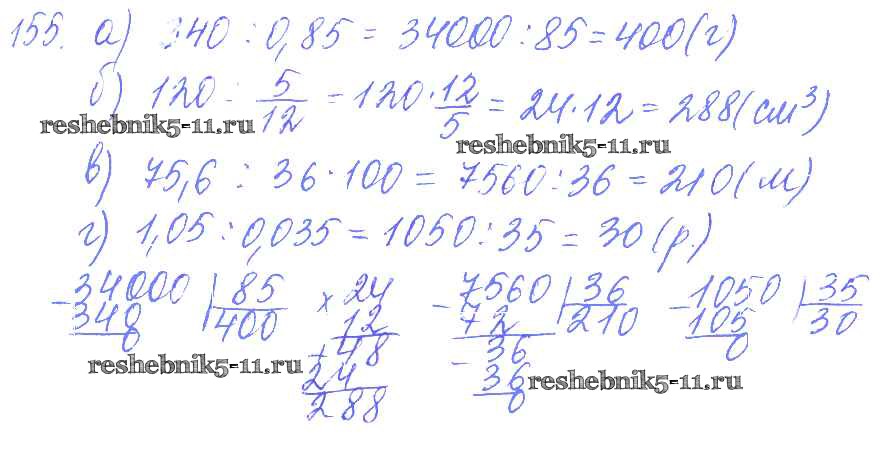 155. а) 340 : 0,85 = 34000 : 85 = 400 (г)
б) 120 : 5/12 = 120 · 12/5 = 24 · 12 = 288 (см³)
reshebnik5-11.ru
reshebnik5-11.ru
в) 75,6 : 36 · 100 = 7560 : 36 = 210 (м)
г) 1,05 : 0,035 = 1050 : 35 = 30 (р.)
- 34000 | 85 × 24 - 7560 | 36 - 1050 | 35
340 400 12 72 210 105 30
0 + 48 - 36 0
reshebnik5-11.ru
24 36 reshebnik5-11.ru
288 0